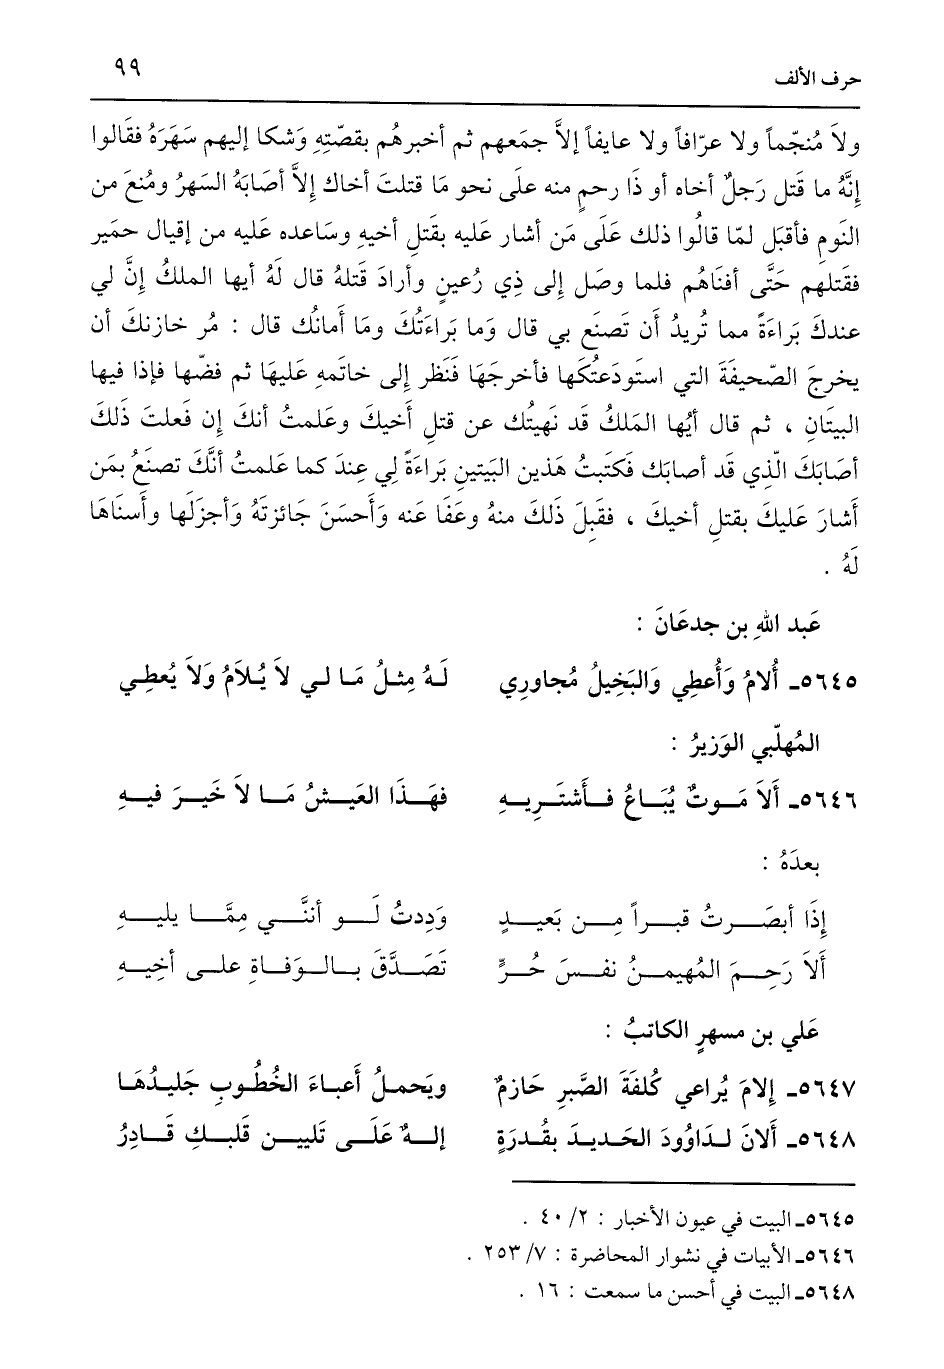 حرف الألف ٩٩
ولاَ مُنجّماً ولا عرّافاً ولا عايفاً إلاَّ جمَعهم ثم أخبرهُم بقصّتِهِ وَشكا إليهم سَهَرَهُ فقَالوا
إنَّهُ ما قَتل رَجلٌ أخاه أو ذَا رحمٍ منه علَى نحوِ مَا قتلتَ أخاك إلاَّ أصَابَهُ السَهرُ ومُنعَ من
النومِ فأقبَل لمّا قالُوا ذلك عَلَى مَن أشار عَليه بقَتلِ أخيهِ وسَاعده عليه من إقيال حمَير
فقَتلهم حَتَّى أفنَاهُم فلما وصَل إلى ذِي رُعينٍ وأرادَ قتلهُ قال لَهُ أيها الملكُ إنَّ لي
عندكَ بَراءَةً مما تُريدُ أن تَصنَع بي قال وَما بَراءَتُكَ ومَا أمانُك قال : مُر خازنكَ أن
يخرجَ الصّحيفَةَ التي استَودَعتُكَها فأخرجَهَا فَنَظر إلى خاتمهِ عَليهَا ثم فضّها فإذا فيها
البيتَانِ ، ثم قال أيُها المَلكُ قَد نهَيتُك عن قتلِ أخيكَ وعَلمتُ أنكَ إن فَعلتَ ذَلكَ
أصَابَكَ الّذي قَد أصابَك فكَتبتُ هَذين البَيتَينِ بَراءَةً لي عِندَ كما عَلمتُ أنَّكَ تصنَعُ بمَن
أشارَ عَليكَ بقتلِ أخيكَ ، فقَبلَ ذَلكَ منهُ وعَفَا عَنه وَأحسَنَ جَائزتَهُ وَأجزلَها وأسنَاها
لَهُ .
عَبد اللهِ بن جدعَانَ :
٥٦٤٥ـ أُلامُ وَأُعطِي وَالبَخِيلُ مُجاورِي لَهُ مِثلُ مَا لي لاَ يُلاَمُ وَلاَ يُعطِي
المُهلّبي الوَزيرُ :
٥٦٤٦ـ أَلاَ مَوتٌ يُبَاعُ فأَشتَرِيهِ فهَذَا العَيشُ مَا لاَ خَيرَ فيهِ
بعدَهُ :
إذَا أبصَرتُ قبراً مِن بَعيدٍ وَددتُ لَو أننَّي ممَّا يليهِ
ألاَ رَحِمَ المُهيمنُ نفسَ حُرٍّ تَصَدَّقَ بالوَفاةِ على أخِيهِ
عَلي بن مسهرٍ الكاتبُ :
٥٦٤٧ـ إلامَ يُراعي كُلفَةَ الصَّبرِ حَازمٌ ويَحملُ أعباءَ الخُطُوبِ جَليدُهَا
٥٦٤٨ـ ألانَ لدَاوُودَ الحَديدَ بقُدرَةٍ إلهٌ عَلَى تَليين قَلبكِ قَادرُ
٥٦٤٥ـ البيت في عيون الأخبار : ٤٠/٢ .
٥٦٤٦ـ الأبيات في نشوار المحاضرة : ٢٥٣/٧ .
٥٦٤٨ـ البيت في أحسن ما سمعت : ١٦ .